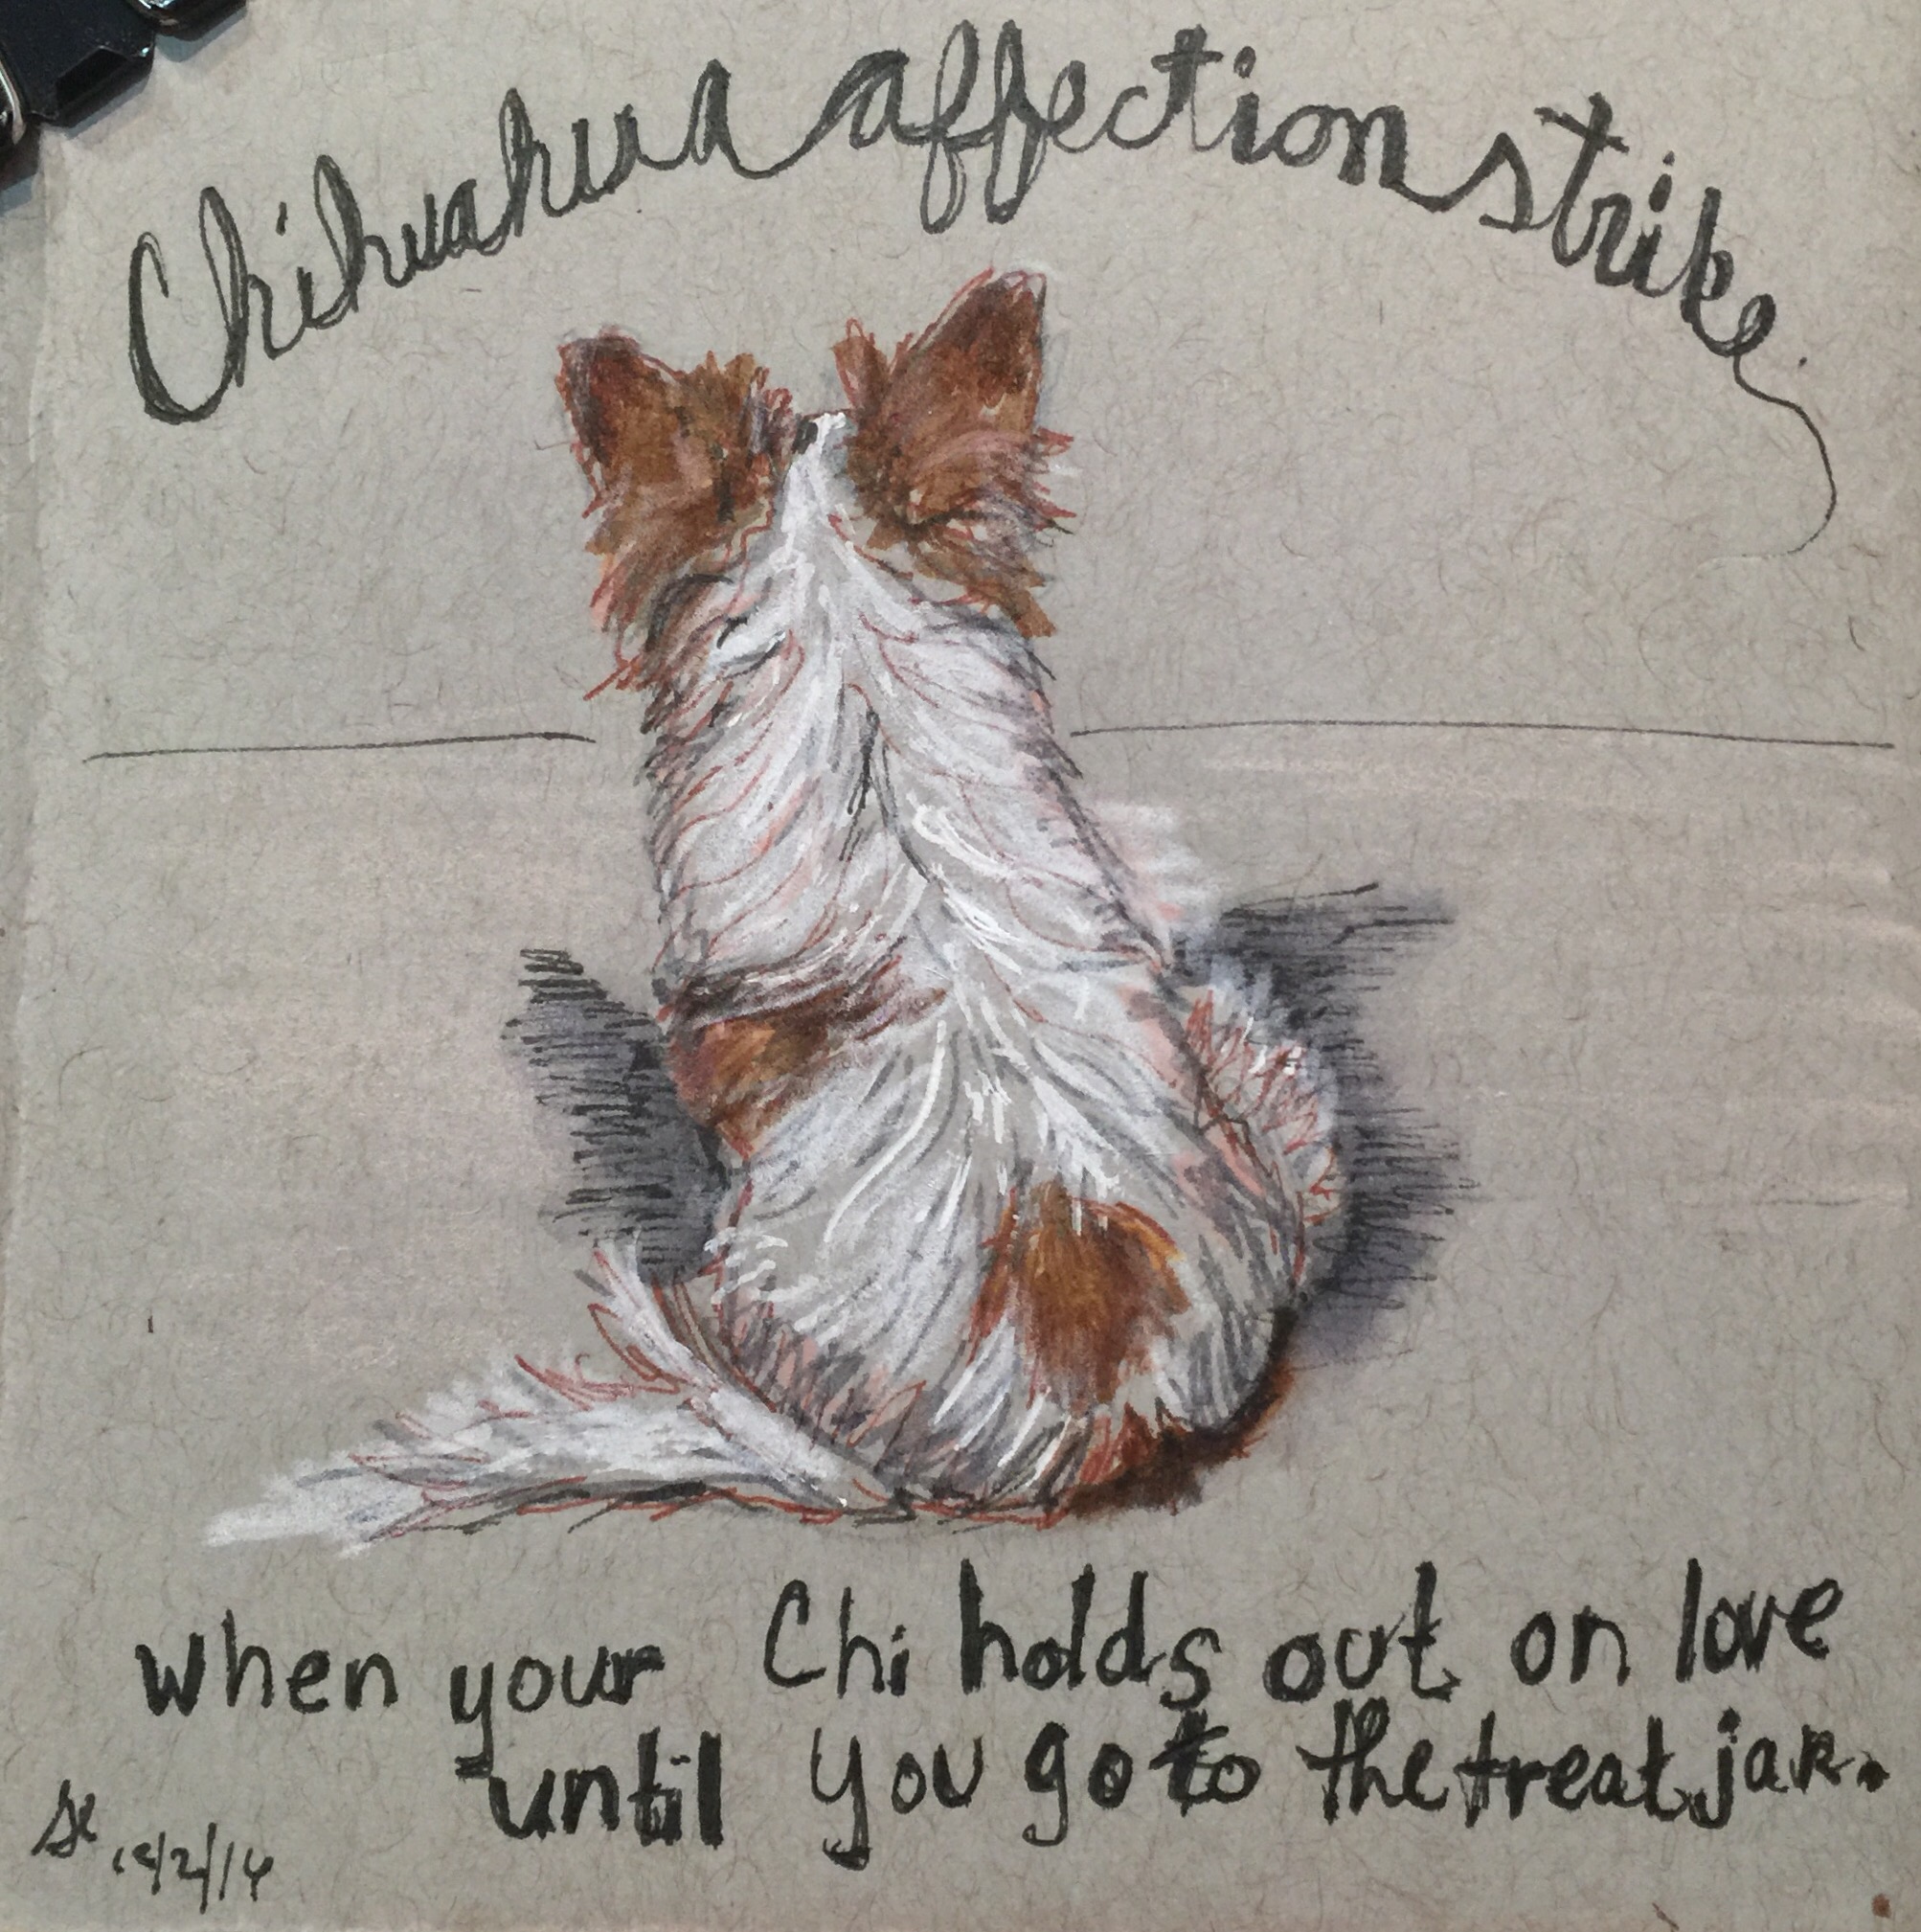 Chihuahua affection strike
when your Chi holds out on love
until you go to the treat jar.